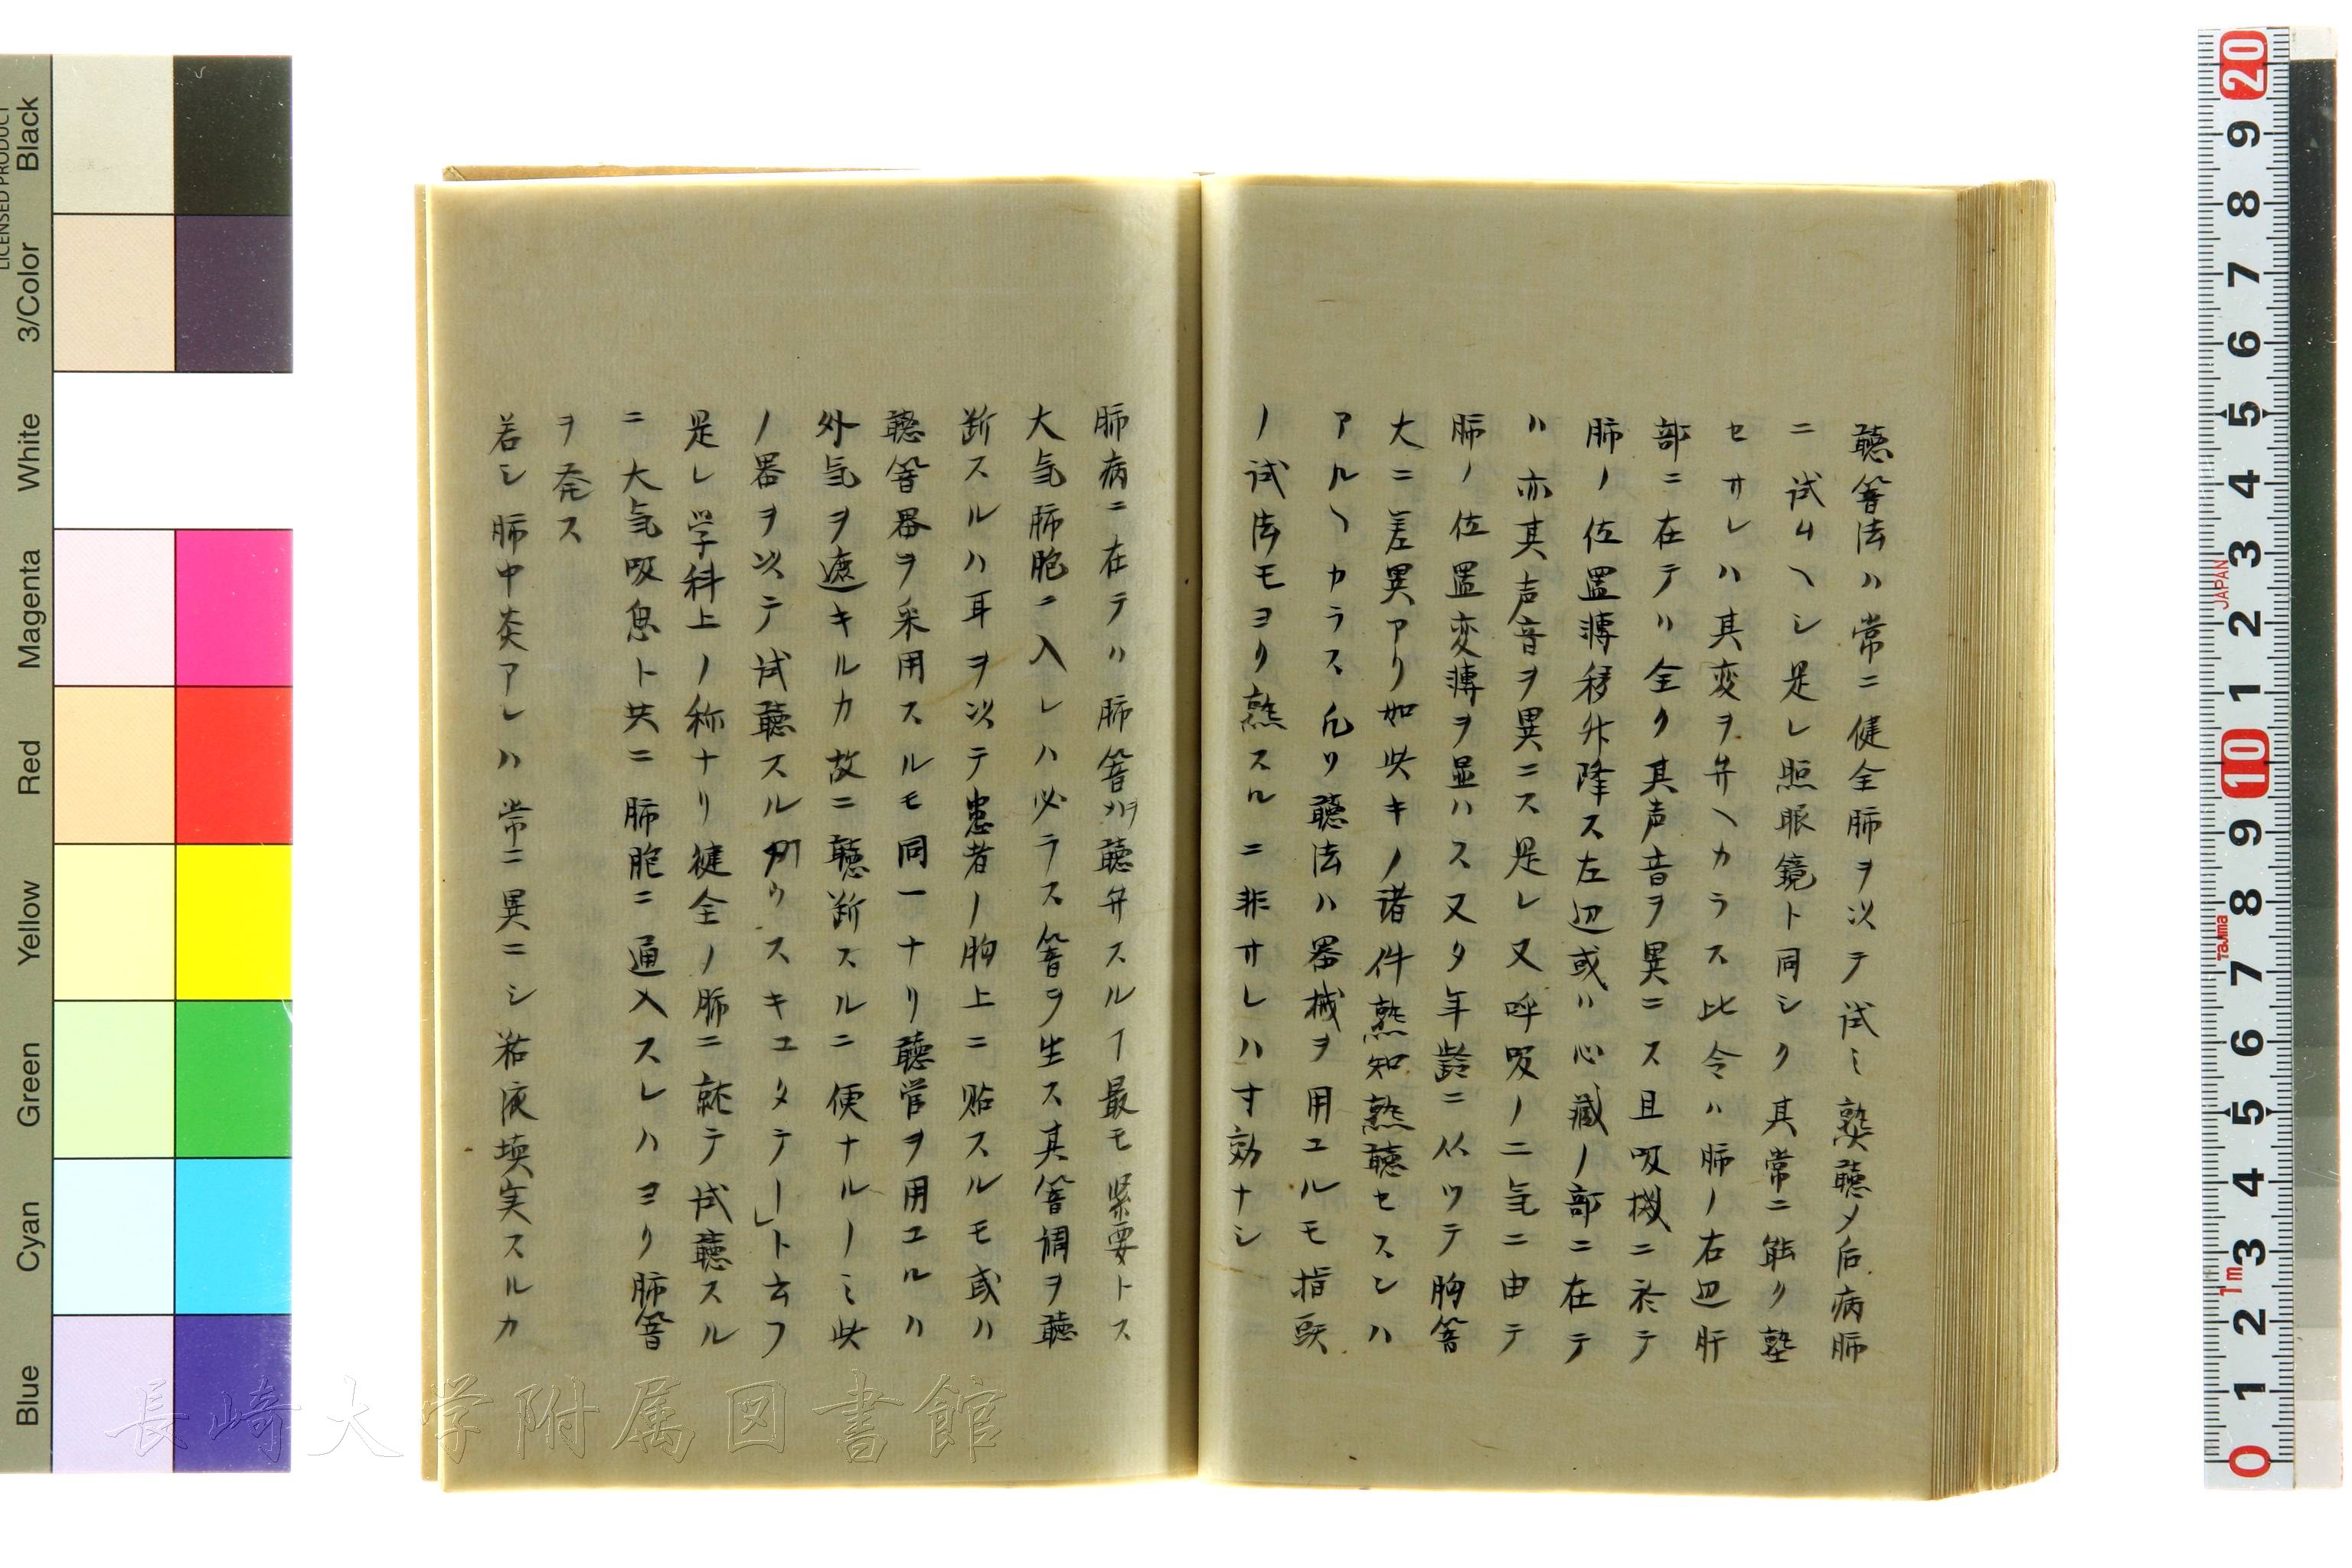 聴響法ハ常ニ健全肺ヲ以テ試ミ熟聴〆后病肺
ニ試ムヘシ是レ照眼鏡ト同シク其常ニ能ク塾
セサレハ其変ヲ弁ヘカラス比令ハ肺ノ右辺肝
部ニ在テハ全ク其声音ヲ異ニス且吸機ニ於テ
肺ノ位置溥移升降ス左辺或ハ心臓ノ部ニ在テ
ハ亦其声音ヲ異ニス是レ又呼吸ノ二気ニ由テ
肺ノ位置変溥ヲ显ハス又タ年齢ニ从ツテ胸響
大ニ差異アリ如此キノ諸件熟知熟聴セスンハ
アルヘカラス凡ソ聴法ハ器械ヲ用ユルモ指頭
ノ試法モヨリ熟スルニ非サレハ寸効ナシ
肺病ニ在テハ肺響ヲ聴弁スルヿ最モ緊要トス
大気肺胞ニ入レハ必ラス響ヲ生ス其響调ヲ聴
断スルハ耳ヲ以テ患者ノ胸上ニ貼スルモ或ハ
聴響器ヲ采用スルモ同一ナリ聴管ヲ用ユルハ
外気ヲ遮キルカ故ニ聴断スルニ便ナルノミ此
ノ器ヲ以テ試聴スルヲアウスキユタテー」ト云フ
是レ学科上ノ称ナリ健全ノ肺ニ就テ試聴スル
ニ大気吸息ト共ニ肺胞ニ通入スレハヨリ肺響
ヲ発ス
若シ肺中炎アレハ常ニ異ニシ粘液填実スルカ
長崎大学附属図書館
Black
3/Color
White
Magenta
Red
Yellow
Green
Cyan
Blue
LICENSED PRODUCT
20 9 8 7 6 5 4 3 2 1 10 9 8 7 6 5 4 3 2 1 0
JAPAN
Tajima
1m